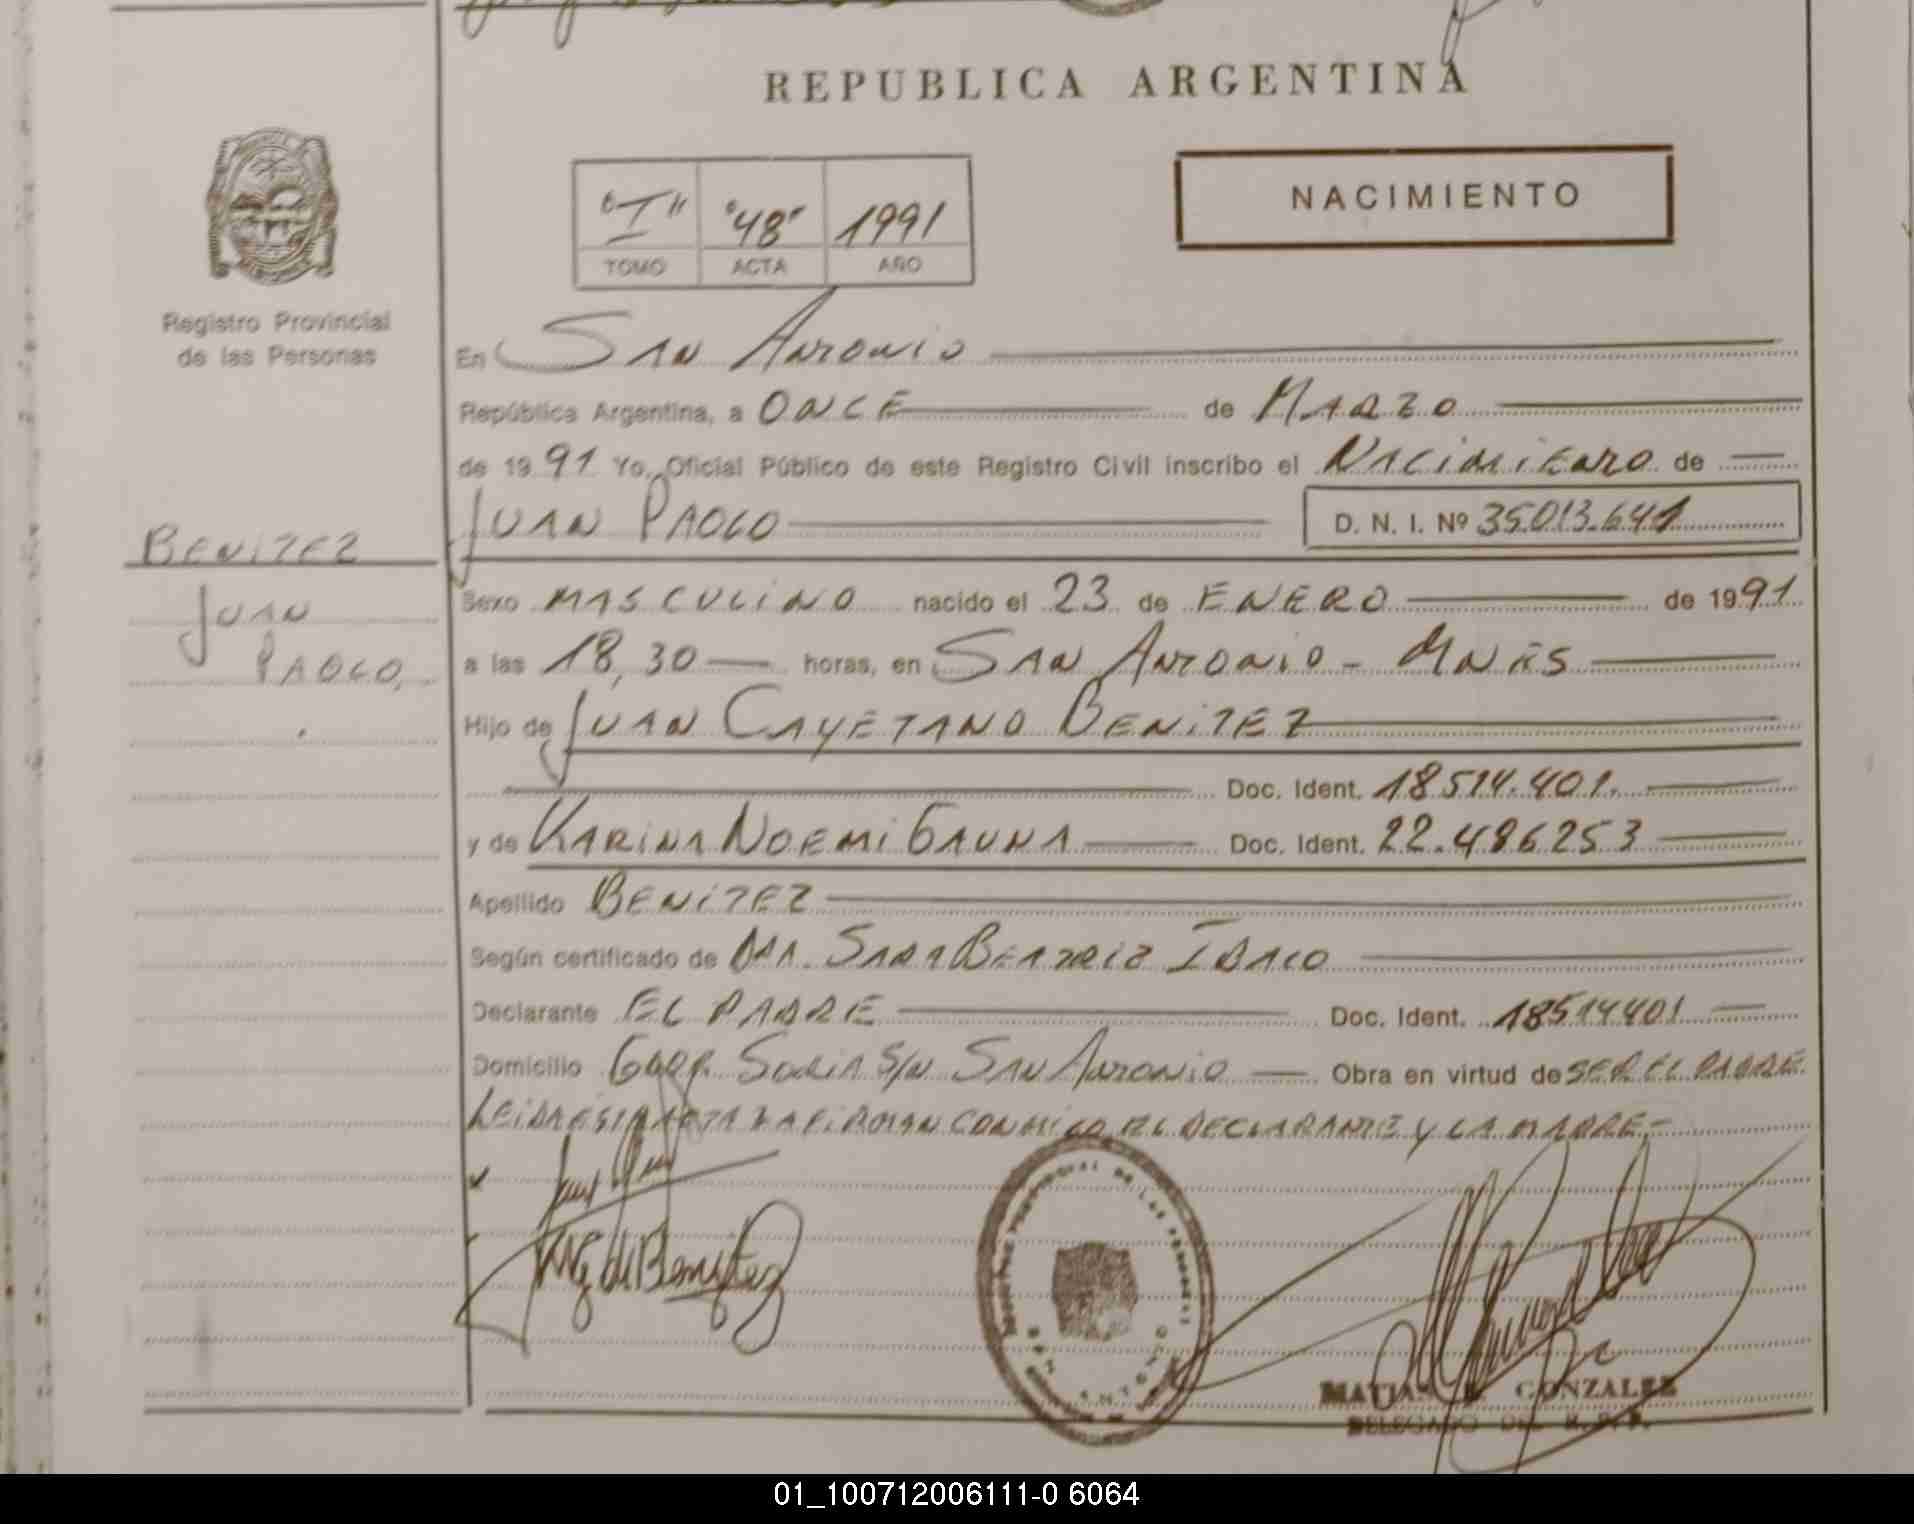 REPUBLICA ARGENTINA
NACIMIENTO
"I" "48" 1991
TOMO ACTA AÑO
Registro Provincial
de las Personas
En SAN ANTONIO
República Argentina, a ONCE de MARZO
de 1991 Yo, Oficial Público de este Registro Civil inscribo el NACIMIENTO de
JUAN PAOLO D. N. I. Nº 35.013.641
BENITEZ
JUAN
PAOLO,
Sexo MASCULINO nacido el 23 de ENERO de 1991
a las 18,30 horas, en SAN ANTONIO - MNES
Hijo de JUAN CAYETANO BENITEZ
Doc. Ident. 18514.401.
y de KARINA NOEMI GAUNA Doc. Ident. 22.486253
Apellido BENITEZ
Según certificado de DRA. SARA BEATRIZ
Declarante EL PADRE Doc. Ident. 18514401
Domicilio S/N SAN ANTONIO Obra en virtud de SER EL PADRE.
LEIDA ESTA ACTA LA FIRMAN CONMIGO EL DECLARANTE Y LA MADRE.-
de Benitez
SAN ANTONIO
MATIAS GONZALEZ
DELEGADO DEL R. P. P.
01_100712006111-0 6064